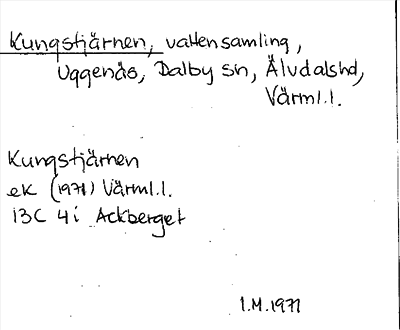 Kungstjärnen, vattensamling,
Uggenäs, Dalby sn, Älvdalshd,
Värml.l.
Kungstjärnen
ek (1971) Värml.l.
13C 4i Ackberget
1.M.1977